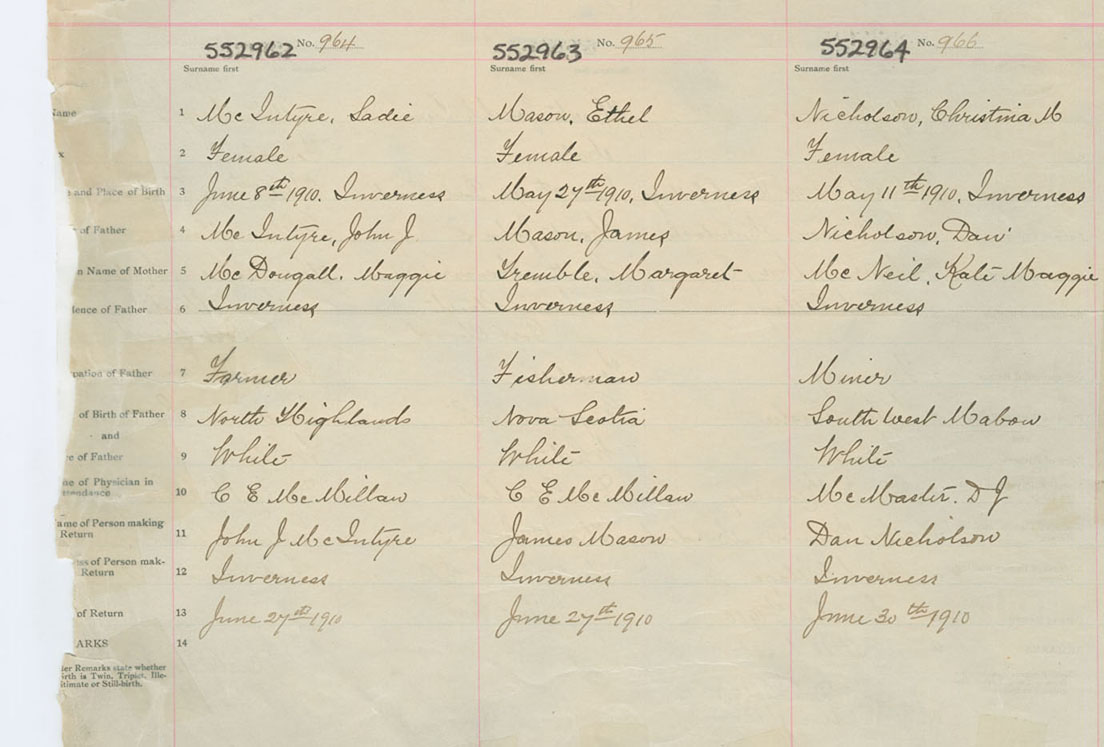 552962 No. 964 552963 No. 965 552964 No. 966
Surname first Surname first Surname first
ame 1 Mc Intyre, Sadie Mason, Ethel Nicholson, Christina M
x 2 Female Female Female
e and Place of Birth 3 June 8th 1910. Inverness May 27th 1910, Inverness May 11th 1910, Inverness
of Father 4 Mc Intyre, John J Mason, James Nicholson, Dan
n Name of Mother 5 Mc Dougall, Maggie Tremble, Margaret Mc Neil, Kate Maggie
dence of Father 6 Inverness Inverness Inverness
pation of Father 7 Farmer Fisherman Miner
of Birth of Father 8 North Highlands Nova Scotia South West Mabou
and
ce of Father 9 White White White
me of Physician in
ttendance 10 C E Mc Millan C E Mc Millan Mc Master. D J
ame of Person making
Return 11 John J Mc Intyre James Mason Dan Nicholson
ss of Person mak-
Return 12 Inverness Inverness Inverness
of Return 13 June 27th 1910 June 27th 1910 June 30th 1910
ARKS 14
der Remarks state whether
irth is Twin, Triplet, Ille-
itimate or Still-birth.